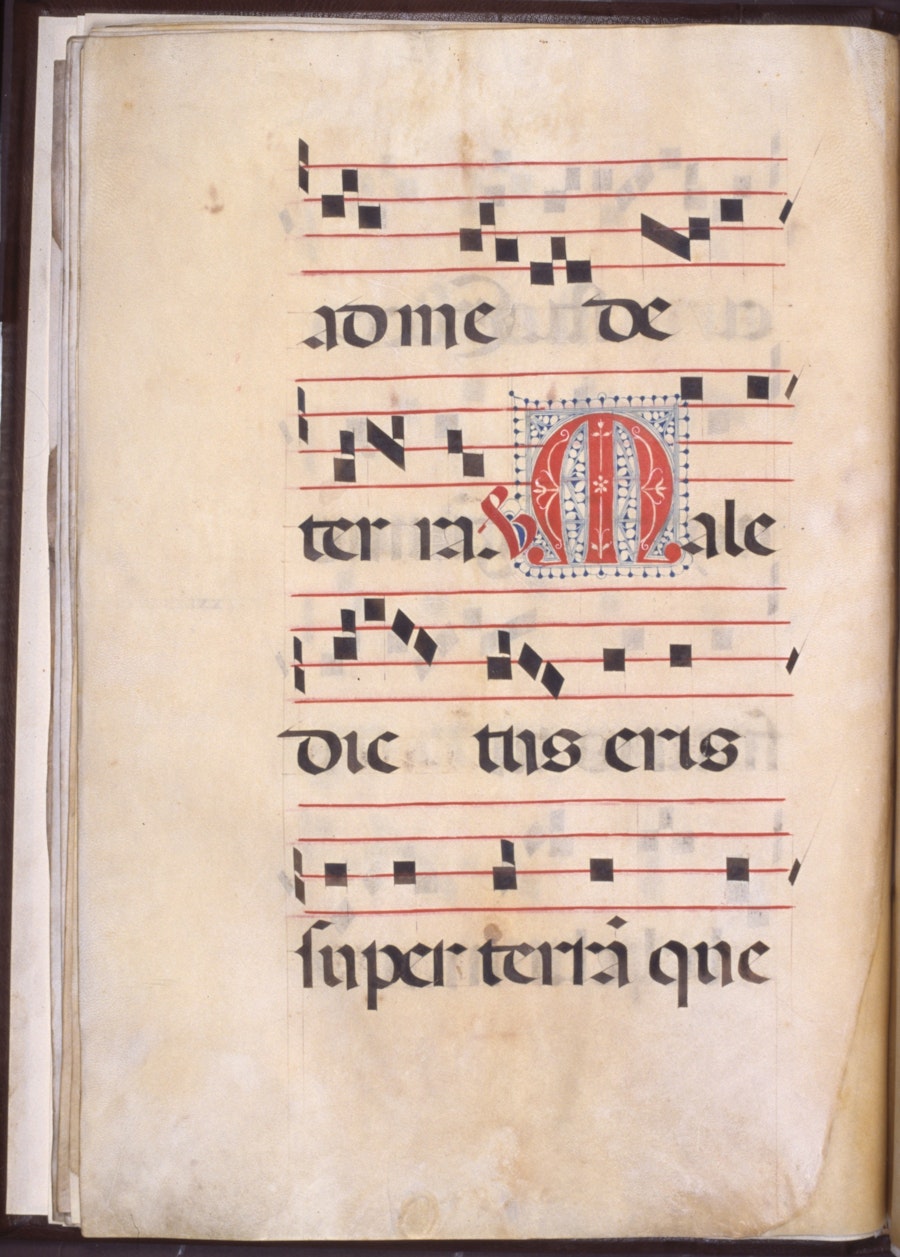 ad me de
ter ra. V Male
dic tus eris
super terrā que